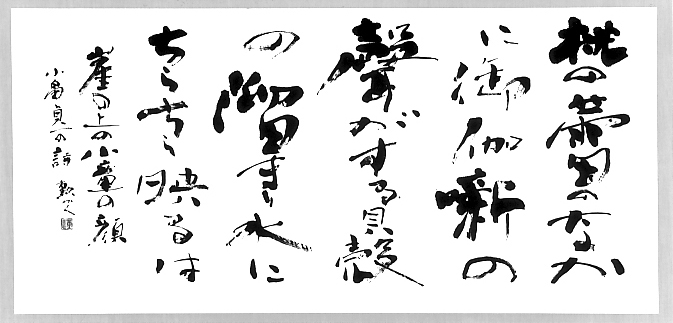 桃の蕾のなか
に御伽噺の
聲がする貝殻
の溜まり水に
ちらちら映るは
崖の上の小童の顔
小畠貞一の詩